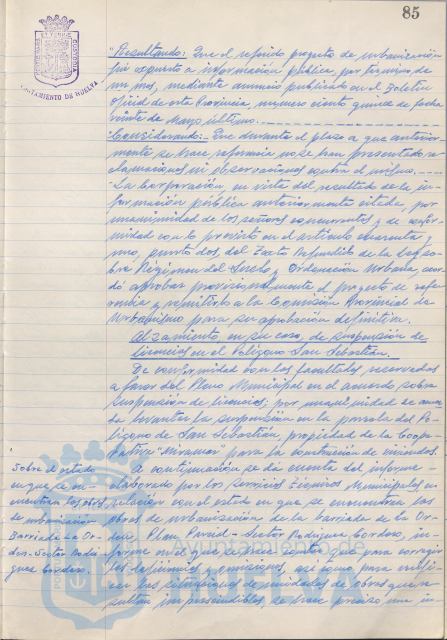 85
AYUNTAMIENTO DE HUELVA
"Resultando: Que el referido proyecto de urbanización
fué expuesto a información pública, por término de
un mes, mediante anuncio publicado en el Boletín
Oficial de esta Provincia, número ciento quince de fecha
veinte de Mayo último.
Considerando: Que durante el plazo a que anterior-
mente se hace referencia no se han presentado re-
clamaciones ni observaciones contra el mismo.
La Corporación, en vista del resultado de la in-
formación pública anteriormente citada, por
unanimidad de los señores concurrentes y de confor-
midad con lo previsto en el artículo cuarenta y
uno, punto dos, del Texto Refundido de la Ley so-
bre Régimen del Suelo y Ordenación Urbana, acor-
dó aprobar provisionalmente el proyecto de refe-
rencia y remitirlo a la Comisión Provincial de
Urbanismo para su aprobación definitiva.
Alzamiento, en su caso, de suspensión de
licencias en el Polígono San Sebastián.
De conformidad con las facultades reservadas
a favor del Pleno Municipal en el acuerdo sobre
suspensión de licencias, por unanimidad se acuer-
da levantar la suspensión en la parcela del Po-
lígono de San Sebastián, propiedad de la Coope-
rativa Miramar para la construcción de viviendas.
Sobre el estado
en que se en-
cuentran las obras
de urbanización
Barriada La Or-
den-Sector Rodrí-
guez Cordero.
A continuación se da cuenta del informe
elaborado por los Servicios Técnicos Municipales, en
relación con el estado en que se encuentran las
obras de urbanización de la barriada de la Or-
den, Plan Parcial-Sector Rodríguez Cordero, in-
forme en el que se hace constar que para corregir
las deficiencias y omisiones, así como para
las de unidades de obras que re-
sultan imprescindibles, se hace preciso una in-